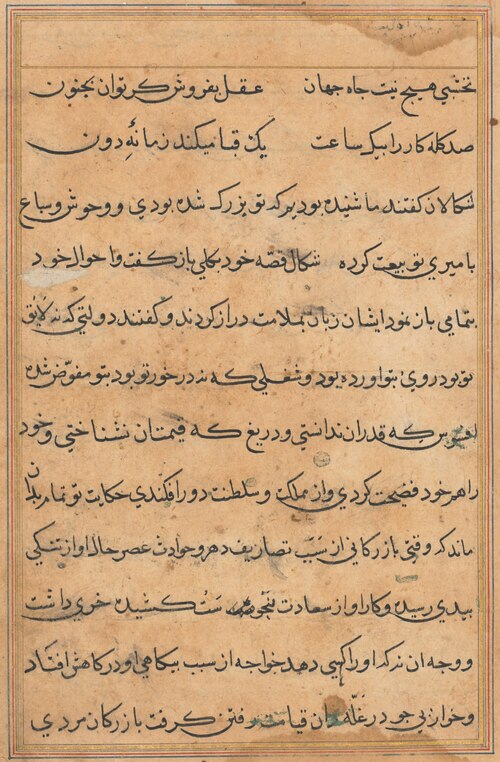 نخشبی هیچ نیت جاه جهان عقل بفروش کر توان بجنون
صد کله کار را بیک ساعت یک قبا میکند زمانهٔ دون
شکالان کفتند ما شنیده بودیم که تو بزرک شده بودی و وحوش و سباع
با میری تو بیعت کرده شکال قصه خود بکلی باز کفت و احوال خود
بتمامی باز نمود ایشان زبان بملامت دراز کردند و کفتند دولتی که نه لایق
تو بود روی بتو اورده بود و شغلی که نه در خور تو بود بتو مفوّض شده
افسوس که قدر ان ندانستی و دریغ که قیمت ان نشناختی و خود
را هم خود فضیحت کردی و از مملکت و سلطنت دور افکندی حکایت تو تمام بدان
ماند که وقتی بازرکانی از سَبَب تصاریف دهر و حوادث عصر حال او از تنکی
ببدی رسیده و کار او از سعادت بنحوست کشیده خری داشت
و وجه ان نه که او را کهی دهد خواجه از سبب بیکاهی او در کاهش افتاد
و خر از بی جو در غلّه دان قیامت رفتن کرفت بازرکان مردی